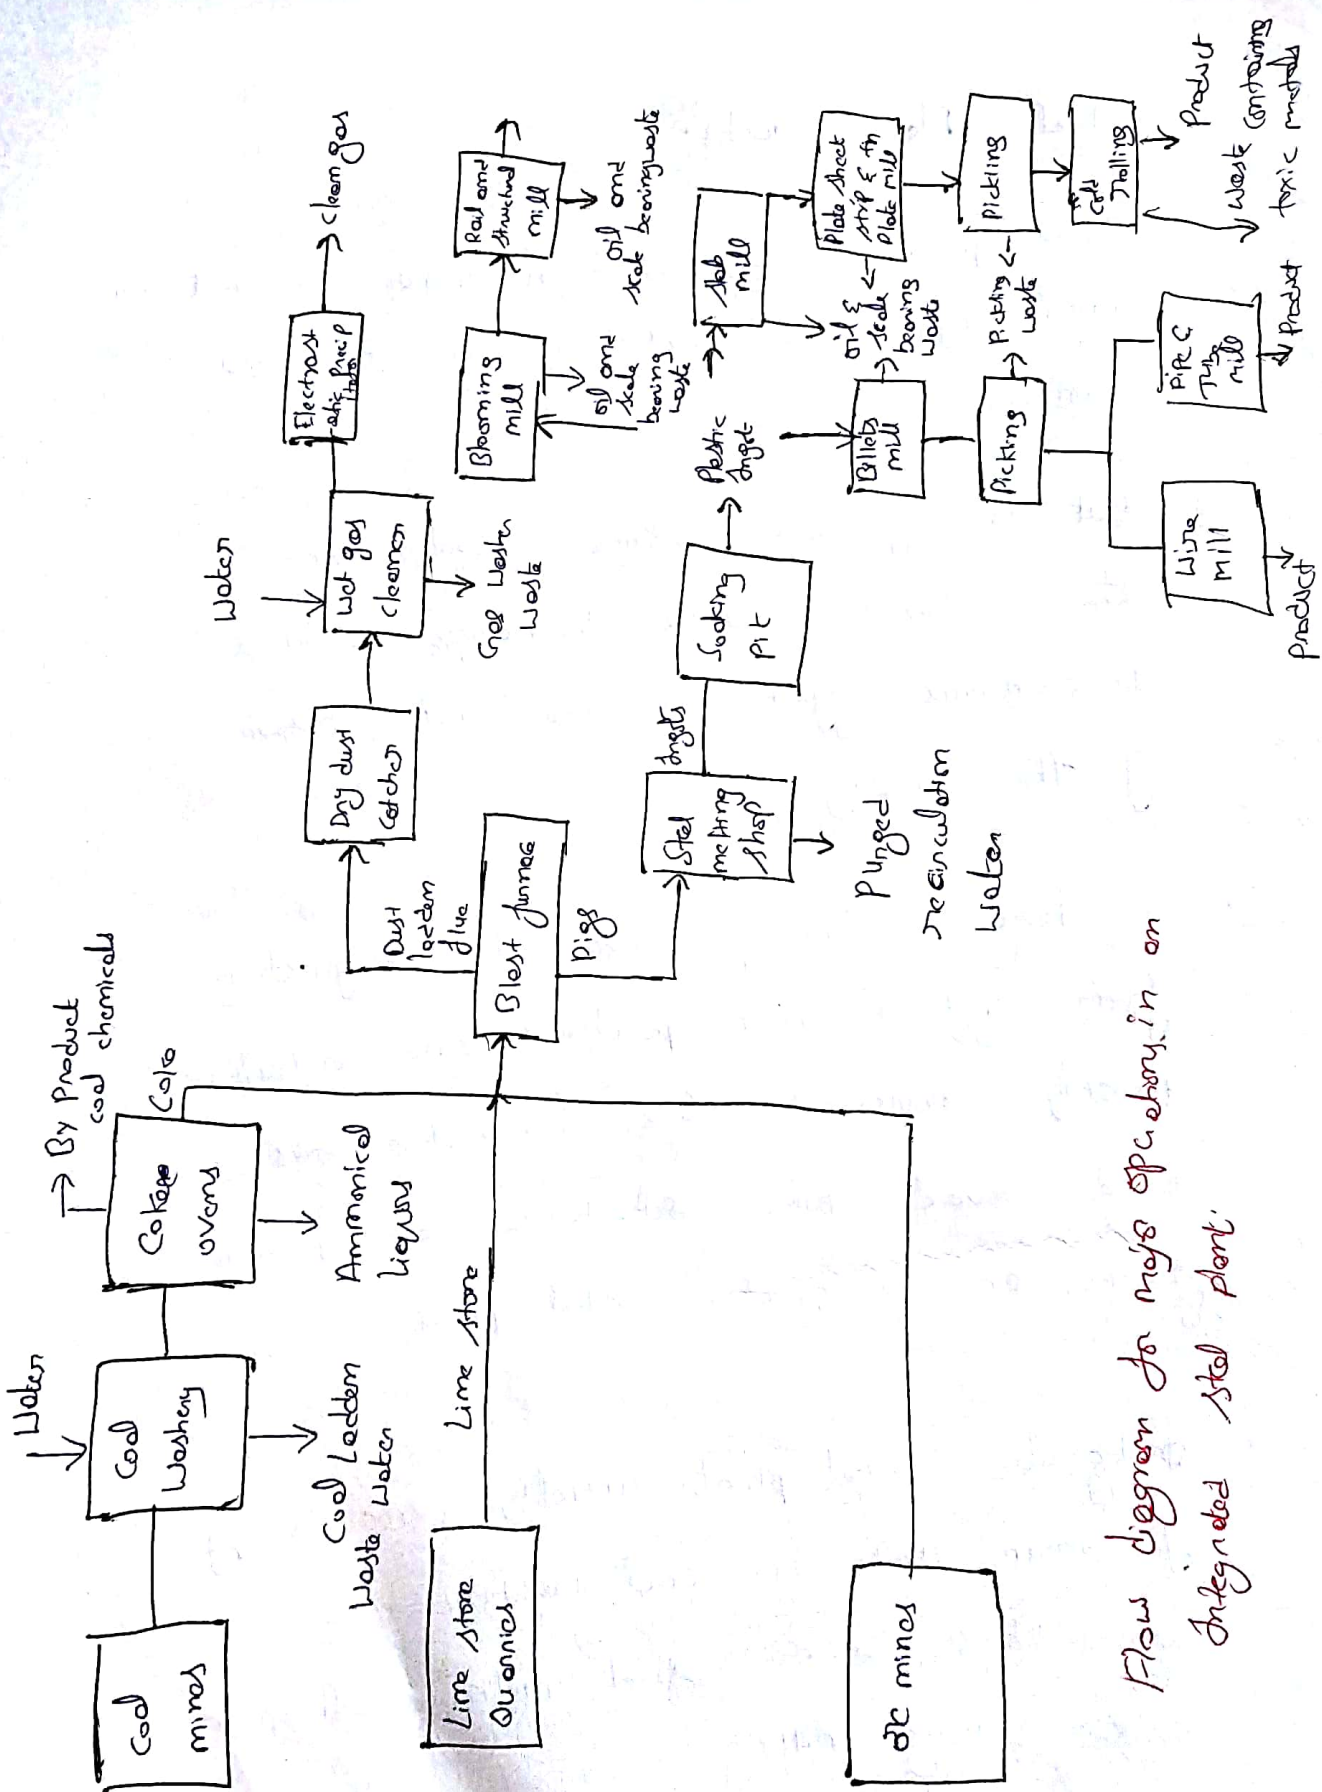 Coal
mines
Water
Coal
Washery
Coal Ladden
Waste Water
By Product
coal chemicals
Coke
Coke
ovens
Ammonical
liquors
Lime stone
Quarries
Lime stone
ore mines
Blast furnace
Dust
ladden
flue
Pigs
Dry dust
Catcher
Water
Wet gas
cleaner
Gas Washer
Waste
Electrost
-atic Precip
itator
Clean gas
Steel
melting
shop
Purged
recirculation
Water
Ingots
Soaking
Pit
Plastic
Ingot
Blooming
mill
oil and
scale
bearing
waste
Rail and
structural
mill
oil and
scale bearing waste
slab
mill
oil &
scale
bearing
waste
Plate sheet
strip & tin
Plate mill
Billets
mill
Pickling
Pickling
waste
Pickling
Cold
rolling
Product
Waste containing
toxic metals
Wire
mill
Product
Pipe &
Tube
mill
Product
Flow diagram for major operations in an
Integrated steel plant.